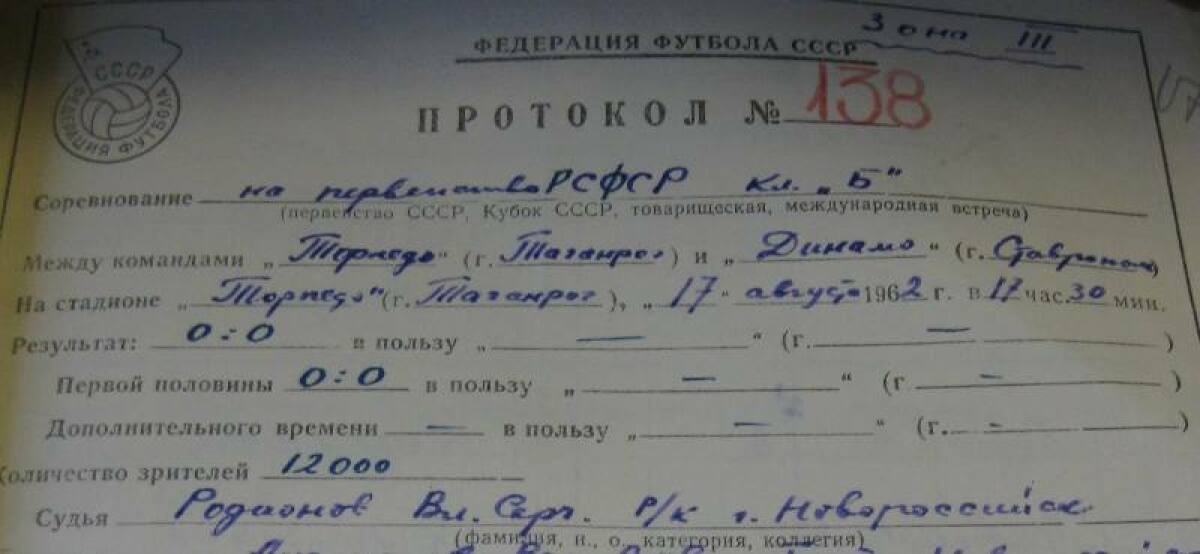 Зона III
ФЕДЕРАЦИЯ ФУТБОЛА СССР
СССР
ФЕДЕРАЦИЯ ФУТБОЛА
ПРОТОКОЛ № 138
Соревнование на первенство РСФСР кл. „Б"
(первенство СССР, Кубок СССР, товарищеская, международная встреча)
Между командами „Торпедо" (г. Таганрог) и „Динамо" (г. Ставрополь)
На стадионе „Торпедо" (г. Таганрог), „17" августа 1962 г. в 17 час. 30 мин.
Результат: 0:0 в пользу „ — " (г. — )
Первой половины 0:0 в пользу „ — " (г — )
Дополнительного времени — в пользу „ — " (г. - )
Количество зрителей 12000
Судья Родионов Вл. Серг. Р/к г. Новороссийск
(фамилия, и., о., категория, коллегия)